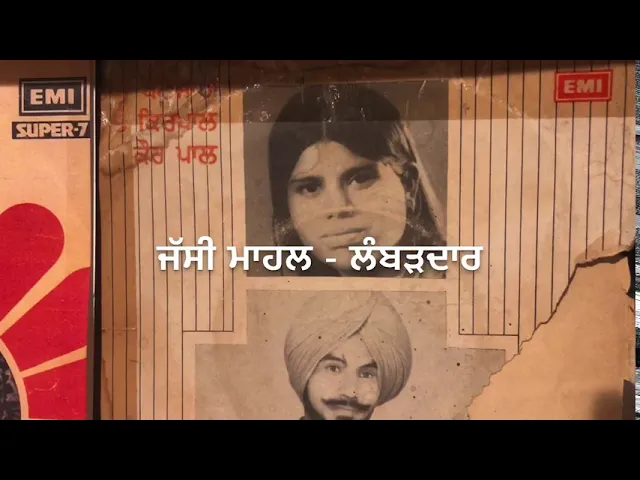 EMI
SUPER-7
EMI
ਕਿਰਪਾਲ
ਕੌਰ ਪਾਲ
ਜੱਸੀ ਮਾਹਲ - ਲੰਬੜਦਾਰ